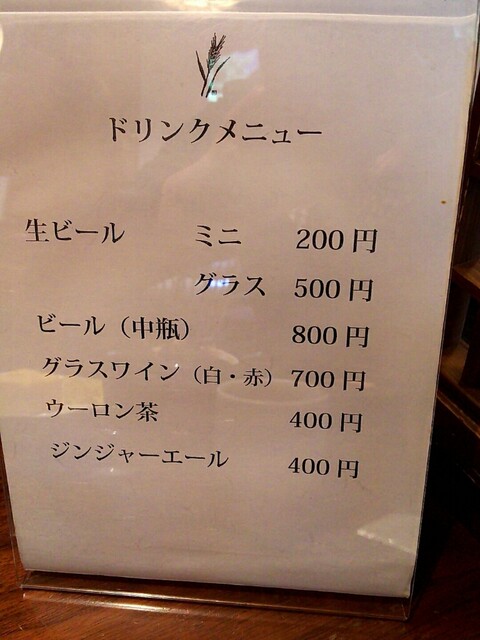 ドリンクメニュー
生ビール ミニ 200円
グラス 500円
ビール（中瓶） 800円
グラスワイン（白・赤） 700円
ウーロン茶 400円
ジンジャーエール 400円